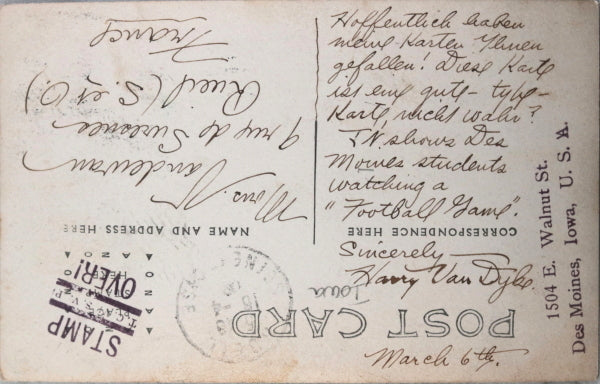 Hoffentlich haben
meine Karten Ihnen
gefallen! Diese Karte
ist eine gute - type -
Karte nicht wahr?
It shows Des
Moines students
watching a
"Football Game".
Sincerely
Harry Van Dyke.
March 6th.
1504 E. Walnut St.
Des Moines, Iowa, U. S. A.
POST CARD
Iowa
CORRESPONDENCE HERE
NAME AND ADDRESS HERE
Mons. Vandewau
9 rue de Suresnes
Rueil (S. et O.)
France
STAMP
OVER!